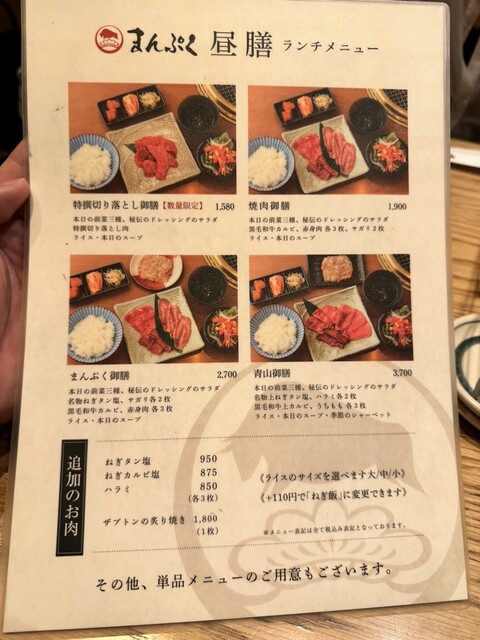 まんぷく 昼膳 ランチメニュー
特撰切り落とし御膳【数量限定】 1,580
本日の前菜三種、秘伝のドレッシングのサラダ
特撰切り落とし肉
ライス・本日のスープ
焼肉御膳 1,900
本日の前菜三種、秘伝のドレッシングのサラダ
黒毛和牛カルビ、赤身肉 各3枚、サガリ2枚
ライス・本日のスープ
まんぷく御膳 2,700
本日の前菜三種、秘伝のドレッシングのサラダ
名物ねぎタン塩、サガリ各2枚
黒毛和牛カルビ、赤身肉 各3枚
ライス・本日のスープ
青山御膳 3,700
本日の前菜三種、秘伝のドレッシングのサラダ
名物上ねぎタン塩、ハラミ各2枚
黒毛和牛上カルビ、うちもも 各3枚
ライス・本日のスープ・季節のシャーベット
追加のお肉
ねぎタン塩 950
ねぎカルビ塩 875
ハラミ 850
(各3枚)
ザブトンの炙り焼き 1,800
(1枚)
《ライスのサイズを選べます大/中/小》
《+110円で「ねぎ飯」に変更できます》
※メニュー表記は全て税込み表記となっております。
その他、単品メニューのご用意もございます。